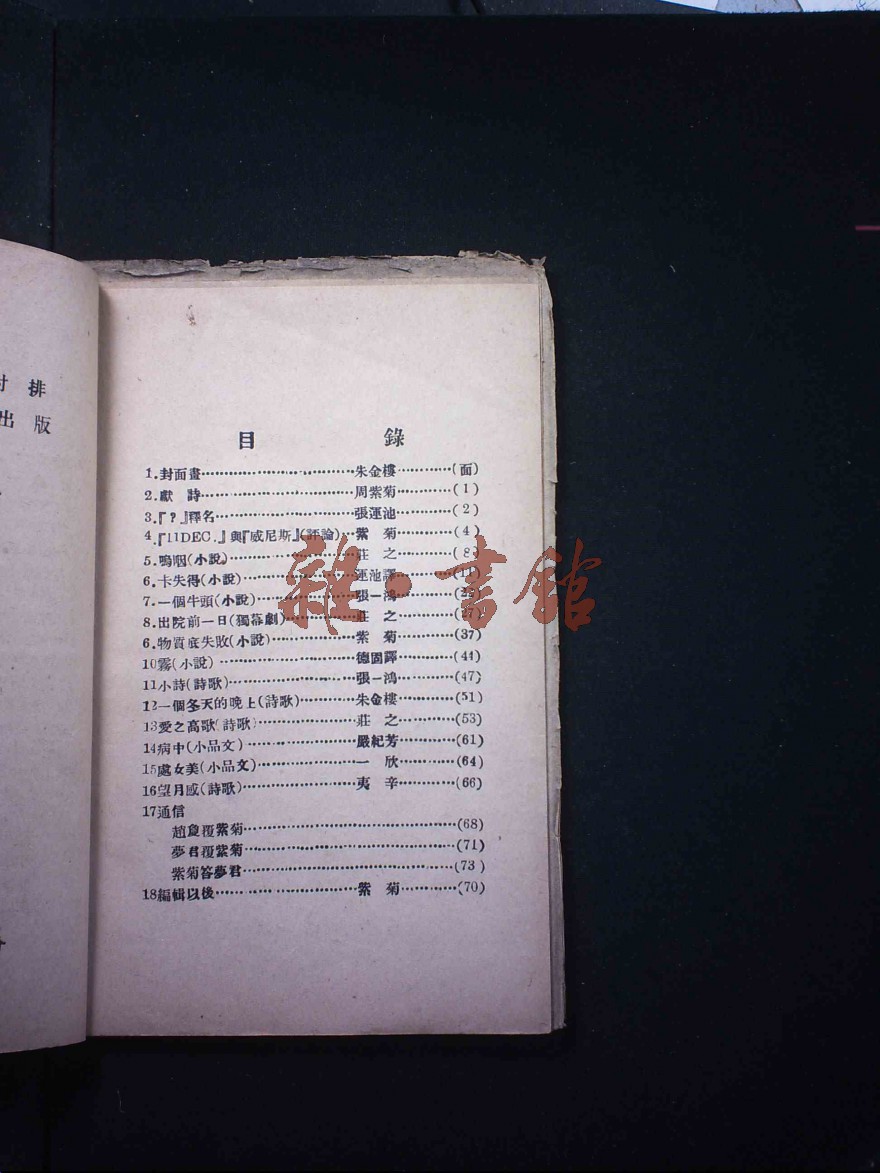 排
出版
目 錄
1.封面畫……朱金樓……(面)
2.獻詩……周紫菊……(1)
3.『?』釋名……張運池……(2)
4.『11DEC.』與『威尼斯』(評論)…紫 菊……(4)
5.嗚咽(小說)……莊 之……(8)
6.卡失得(小說)……運池譯……(11)
7.一個牛頭(小說)……張一鴻……
8.出院前一日(獨幕劇)……莊 之……
6.物質底失敗(小說)……紫 菊……(37)
10霧(小說)……德固譯……(44)
11小詩(詩歌)……張一鴻……(47)
12一個冬天的晚上(詩歌)……朱金樓……(51)
13愛之高歌(詩歌)……莊 之……(53)
14病中(小品文)……嚴紀芳……(61)
15處女美(小品文)……一 欣……(64)
16望月感(詩歌)……夷 辛……(66)
17通信
趙 覆紫菊……(68)
夢君覆紫菊……(71)
紫菊答夢君……(73)
18編輯以後……紫 菊……(70)
雜·書館